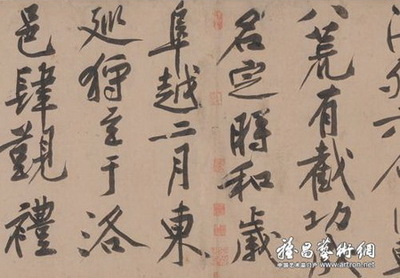 八荒有截功
名定時和歲
阜越二月東
巡狩至于洛
邑肆覲禮
雅昌藝術網
www.artron.net